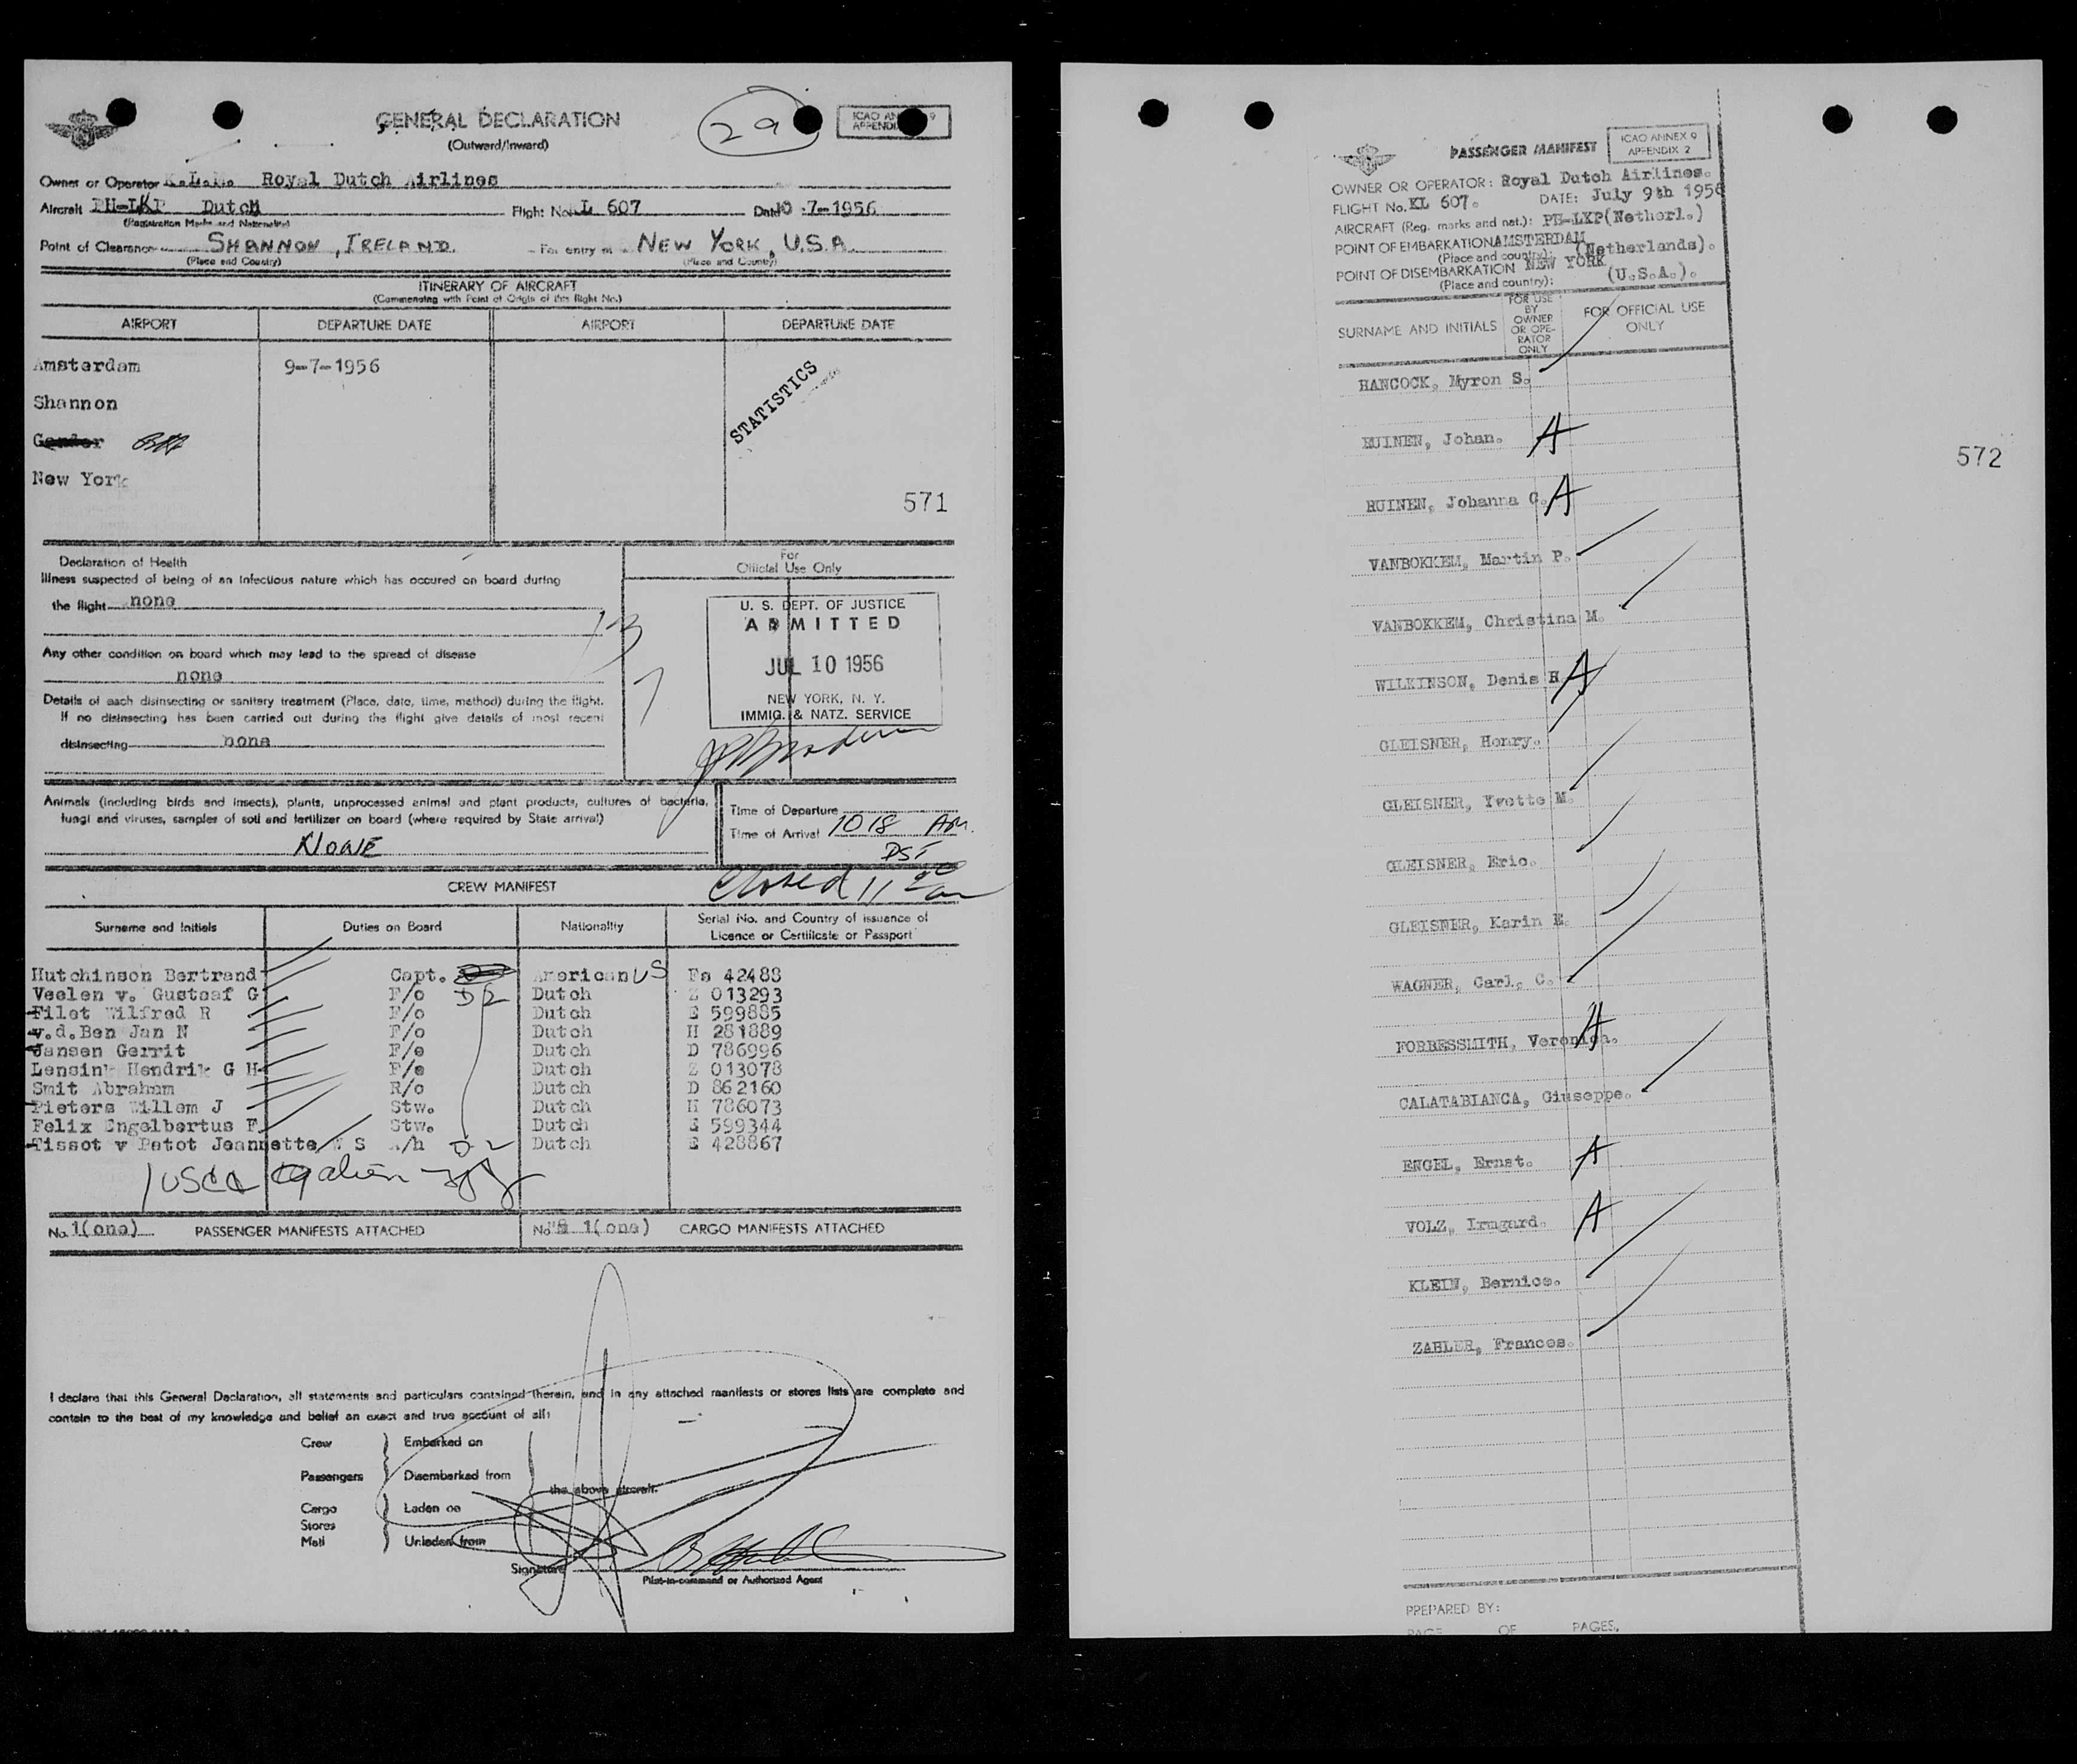 GENERAL DECLARATION
(Outward/Inward)
29
ICAO AN 9
APPENDI
Owner or Operator K.L.M. Royal Dutch Airlines
Aircraft PH-LKP Dutch Flight No. KL 607 Date 10-7-1956
(Registration Marks and Nationality)
Point of Clearance SHANNON, IRELAND. For entry at NEW YORK, U.S.A.
(Place and Country) (Place and Country)
ITINERARY OF AIRCRAFT
(Commencing with Point of Origin of this flight No.)
AIRPORT DEPARTURE DATE AIRPORT DEPARTURE DATE
Amsterdam 9-7-1956
Shannon
Gander
New York
STATISTICS
571
Declaration of Health
Illness suspected of being of an infectious nature which has occured on board during
the flight none
Any other condition on board which may lead to the spread of disease
none
Details of each disinsecting or sanitary treatment (Place, date, time, method) during the flight.
If no disinsecting has been carried out during the flight give details of most recent
disinsecting none
For
Official Use Only
U. S. DEPT. OF JUSTICE
ADMITTED
JUL 10 1956
NEW YORK, N. Y.
IMMIG. & NATZ. SERVICE
Animals (including birds and insects), plants, unprocessed animal and plant products, cultures of bacteria,
fungi and viruses, samples of soil and fertilizer on board (where required by State arrival)
NONE
Time of Departure
Time of Arrival 1018 AM.
DST
Closed 11 20 am
CREW MANIFEST
Surname and Initials Duties on Board Nationality Serial No. and Country of issuance of
Licence or Certificate or Passport
Hutchinson Bertrand Capt. American US Fa 42488
Veelen v. Gustaaf G F/o D2 Dutch Z 013293
Filet Wilfred R F/o Dutch E 599885
v.d.Ben Jan N F/o Dutch H 281889
Jansen Gerrit F/e Dutch D 786996
Lensink Hendrik G H F/e Dutch Z 013078
Smit Abraham R/o Dutch D 862160
Pieters Willem J Stw. Dutch H 786073
Felix Engelbertus F. Stw. Dutch E 599344
Tissot v Patot Jeannette W S A/h D-2 Dutch E 428867
1 USCC 9 alien
No. 1(one) PASSENGER MANIFESTS ATTACHED No. 1(one) CARGO MANIFESTS ATTACHED
I declare that this General Declaration, all statements and particulars contained therein, and in any attached manifests or stores lists are complete and
contain to the best of my knowledge and belief an exact and true account of all:
Crew Embarked on
Passengers Disembarked from
the above aircraft.
Cargo Laden on
Stores
Mail Unladen from
Signature
Pilot-in-command or Authorized Agent
PASSENGER MANIFEST
ICAO ANNEX 9
APPENDIX 2
OWNER OR OPERATOR: Royal Dutch Airlines.
FLIGHT No. KL 607. DATE: July 9th 1956
AIRCRAFT (Reg. marks and nat.): PH-LKP(Netherl.)
POINT OF EMBARKATION AMSTERDAM
(Place and country): (Netherlands).
POINT OF DISEMBARKATION NEW YORK
(Place and country): (U.S.A.).
SURNAME AND INITIALS
FOR USE BY OWNER OR OPE-RATOR ONLY
FOR OFFICIAL USE ONLY
HANCOCK, Myron S.
RUINEN, Johan. A
RUINEN, Johanna C. A
572
VANBOKKEM, Martin P.
VANBOKKEM, Christina M.
WILKINSON, Denis H. A
GLEISNER, Henry.
GLEISNER, Yvette M.
GLEISNER, Eric.
GLEISNER, Karin E.
WAGNER, Carl, C.
FORBESSMITH, Veronica. A
CALATABIANCA, Giuseppe.
ENGEL, Ernst. A
VOLZ, Irmgard. A
KLEIN, Bernice.
ZAHLER, Frances.
PREPARED BY:
PAGE OF PAGES.